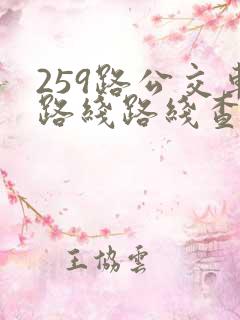 259路公交车
路线路线查
王協雲